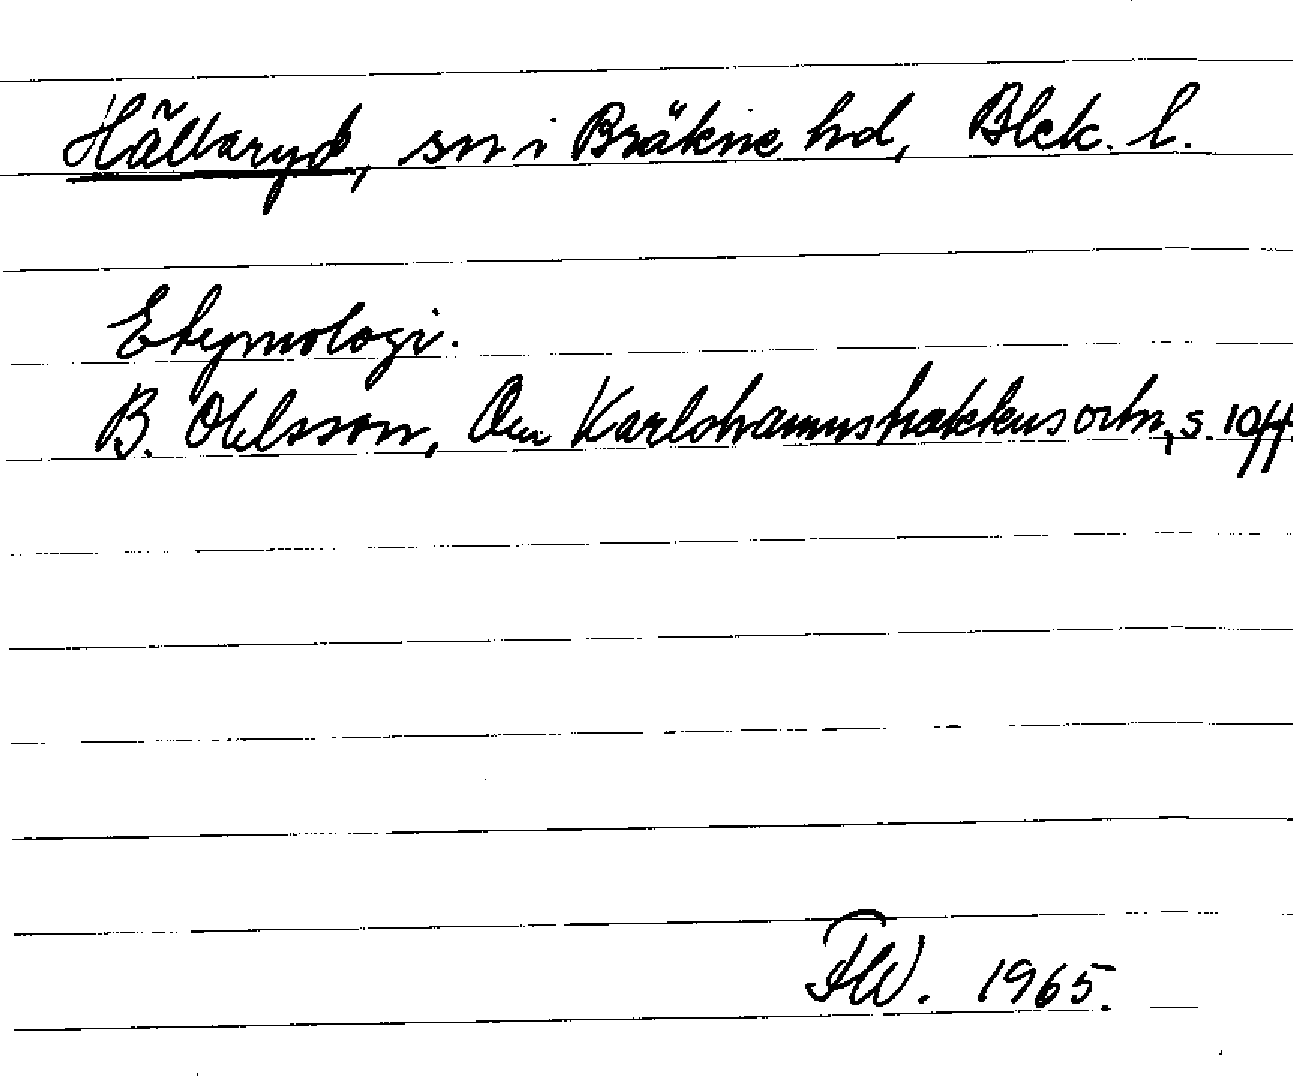 Hällaryd, sn i Bräkne hd, Blek. l.
Etymologi.
B. Ohlsson, Om Karlshamnstraktens ortn, s. 10ff.
FW. 1965.